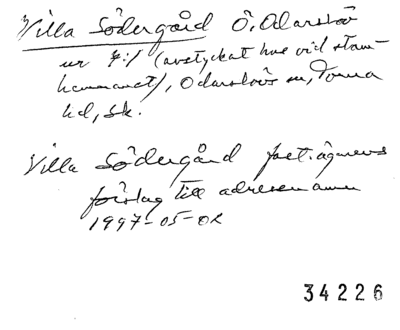 Villa Södergård Ö. Odarslöv
ur 7:1 (avstyckat hus vid stam-
hemmanet), Odarslövs sn, Torna
hd, Sk.
Villa Södergård fast.ägarens
förslag till adressnamn
1997-05-02
34226